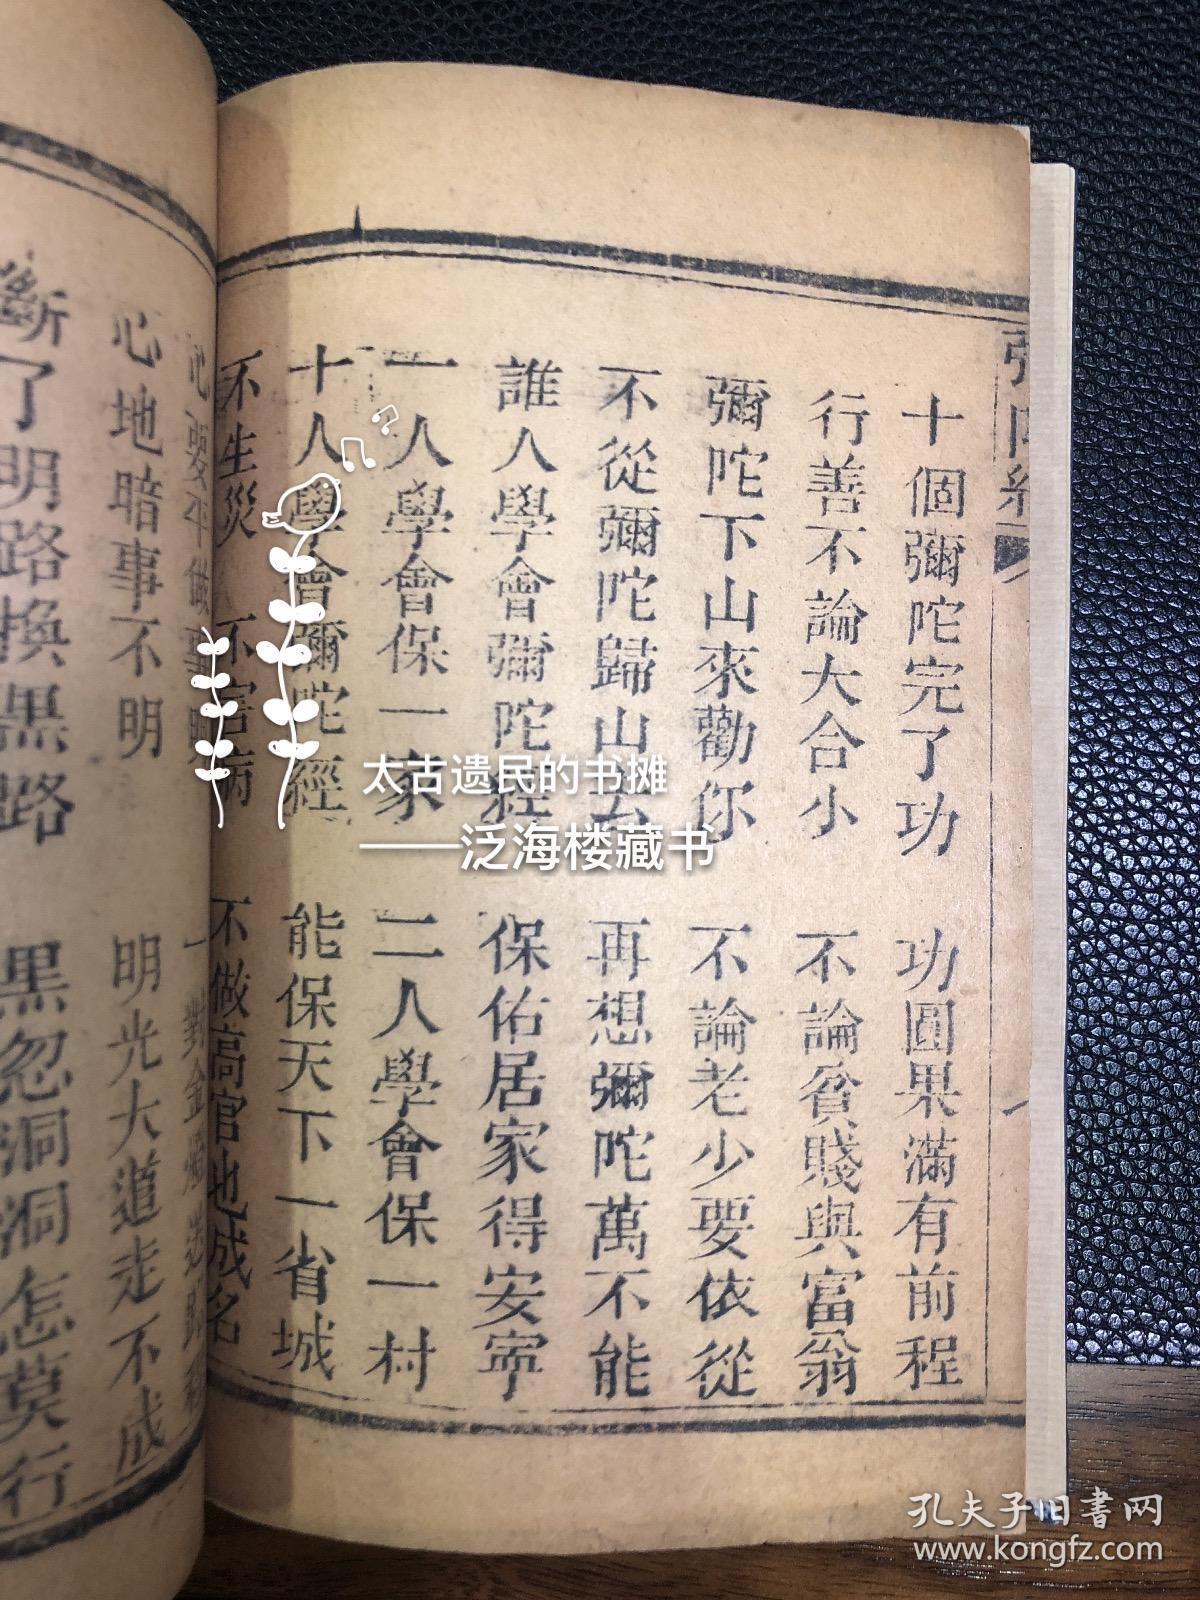 十個彌陀完了功　功圓果滿有前程
行善不論大合小　不論貧賤與富翁
彌陀下山來勸你　不論老少要依從
不從彌陀歸山去　再想彌陀萬不能
誰人學會彌陀經　保佑居家得安寧
一人學會保一家　二人學會保一村
十人學會彌陀經　能保天下一省城
不生災　不害病　不做高官也成名
心地暗事不明　明光大道走不成
斷了明路換黑路　黑忽洞洞怎莫行
太古遗民的书摊
——泛海楼藏书
孔夫子旧书网
www.kongfz.com